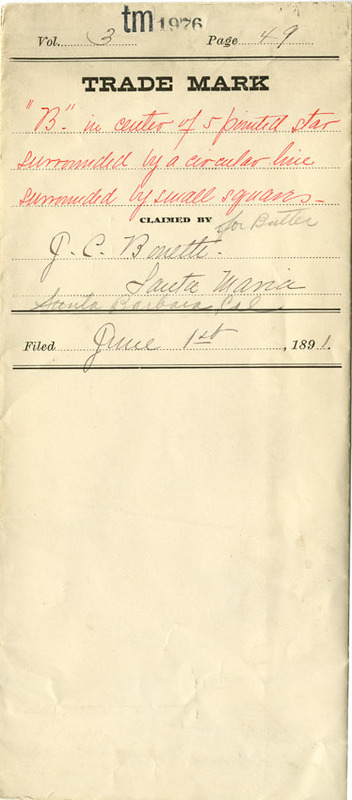 tm 1976
Vol. 3 Page 49
TRADE MARK
"B." in center of 5 pointed star
surrounded by a circular line
surrounded by small squares-
CLAIMED BY for Butter
J. C. Bonetti.
Santa Maria
Santa Barbara Cal
Filed June 1st, 1891.